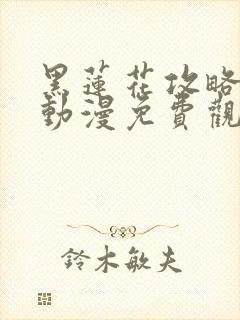 黑蓮花攻略
動漫免費觀
鈴木敏夫